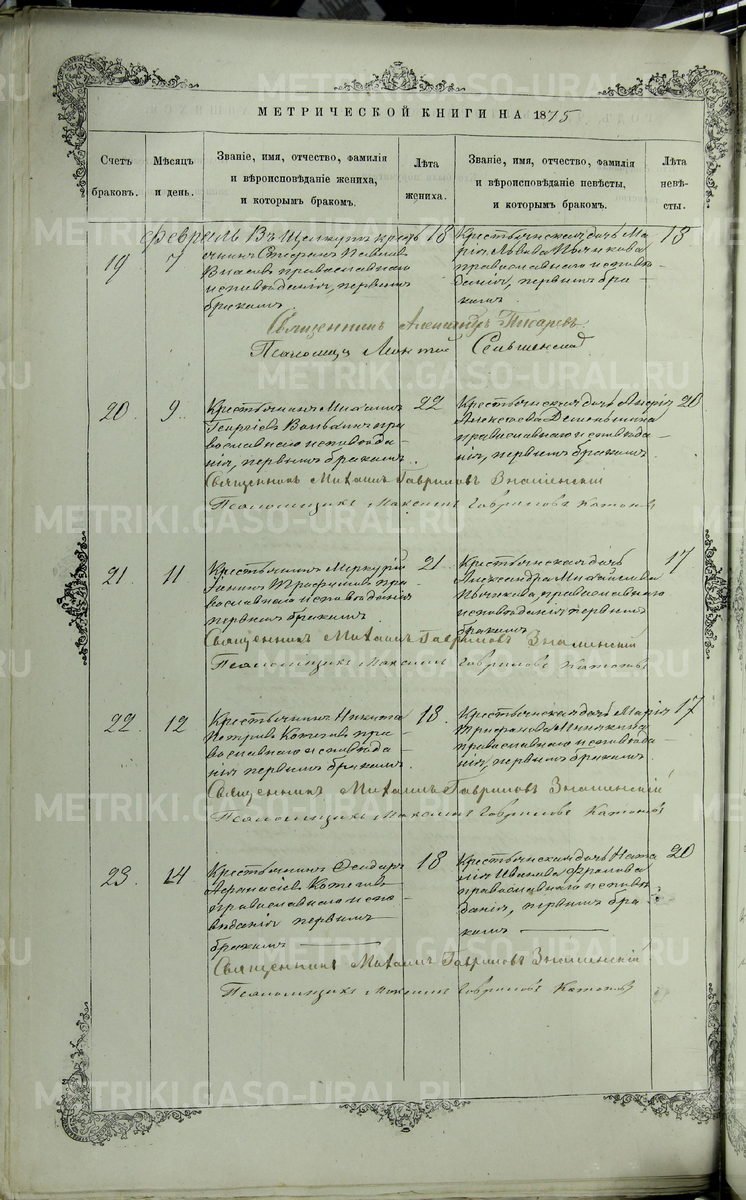 МЕТРИЧЕСКОЙ КНИГИ НА 1875
Счетъ браковъ.
Мѣсяцъ и день.
Званіе, имя, отчество, фамилія
и вѣроисповѣданіе жениха,
и которымъ бракомъ.
Лѣта жениха.
Званіе, имя, отчество, фамилія
и вѣроисповѣданіе невѣсты,
и которымъ бракомъ.
Лѣта невѣсты.
Февраль
19
7
Стефанъ
православнаго
исповѣданія, первымъ
бракомъ
18
Крестьянская дочь Ма-
рія
православнаго исповѣ-
данія, первымъ бра-
комъ
18
Священникъ Александръ
20
9
Крестьянинъ Михаилъ
Георгіевъ пра-
вославнаго исповѣда-
нія, первымъ бракомъ.
22
Крестьянская дочь
Алексѣева
православнаго исповѣда-
нія, первымъ бракомъ
20
Священникъ Михаилъ Гавриловъ Знаменскій
Псаломщикъ Максимъ Гавриловъ
21
11
Крестьянинъ Меркурій
пра-
вославнаго исповѣданія
первымъ бракомъ
21
Крестьянская дочь
Александра Михайлова
православнаго
исповѣданія первымъ
бракомъ
17
Священникъ Михаилъ Гавриловъ Знаменскій
Псаломщикъ Максимъ Гавриловъ
22
12
Крестьянинъ Никита
Петровъ пра-
вославнаго исповѣда-
нія первымъ бракомъ
18
Крестьянская дочь Марія
православнаго исповѣда-
нія, первымъ бракомъ
17
Священникъ Михаилъ Гавриловъ Знаменскій
Псаломщикъ Максимъ Гавриловъ
23
14
Крестьянинъ Ѳеодоръ
Аѳанасіевъ
православнаго испо-
вѣданія первымъ
бракомъ
18
Крестьянская дочь Ната-
лія Иванова
православнаго исповѣ-
данія, первымъ бра-
комъ
20
Священникъ Михаилъ Гавриловъ Знаменскій
Псаломщикъ Максимъ Гавриловъ
METRIKI.GASO-URAL.RU